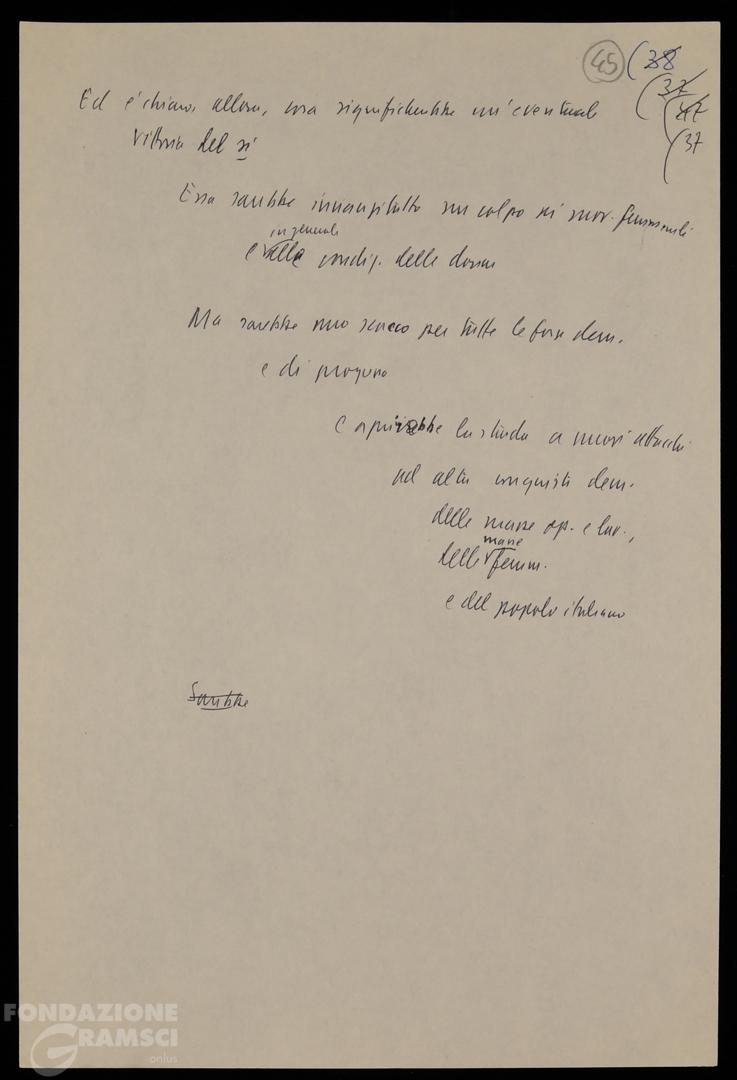 45 (38
(37
(47
(37
Ed è chiaro, allora, cosa significherebbe un'eventuale
vittoria del sì
Essa sarebbe innanzitutto un colpo ai mov. femminili
in generale
e alla condiz. delle donne
Ma sarebbe uno scacco per tutte le forze dem.
e di progresso
E aprirebbe la strada a nuovi attacchi
ad altre conquiste dem.
delle masse op. e lav.,
masse
delle femm.
e del popolo italiano
Sarebbe
FONDAZIONE
GRAMSCI
onlus